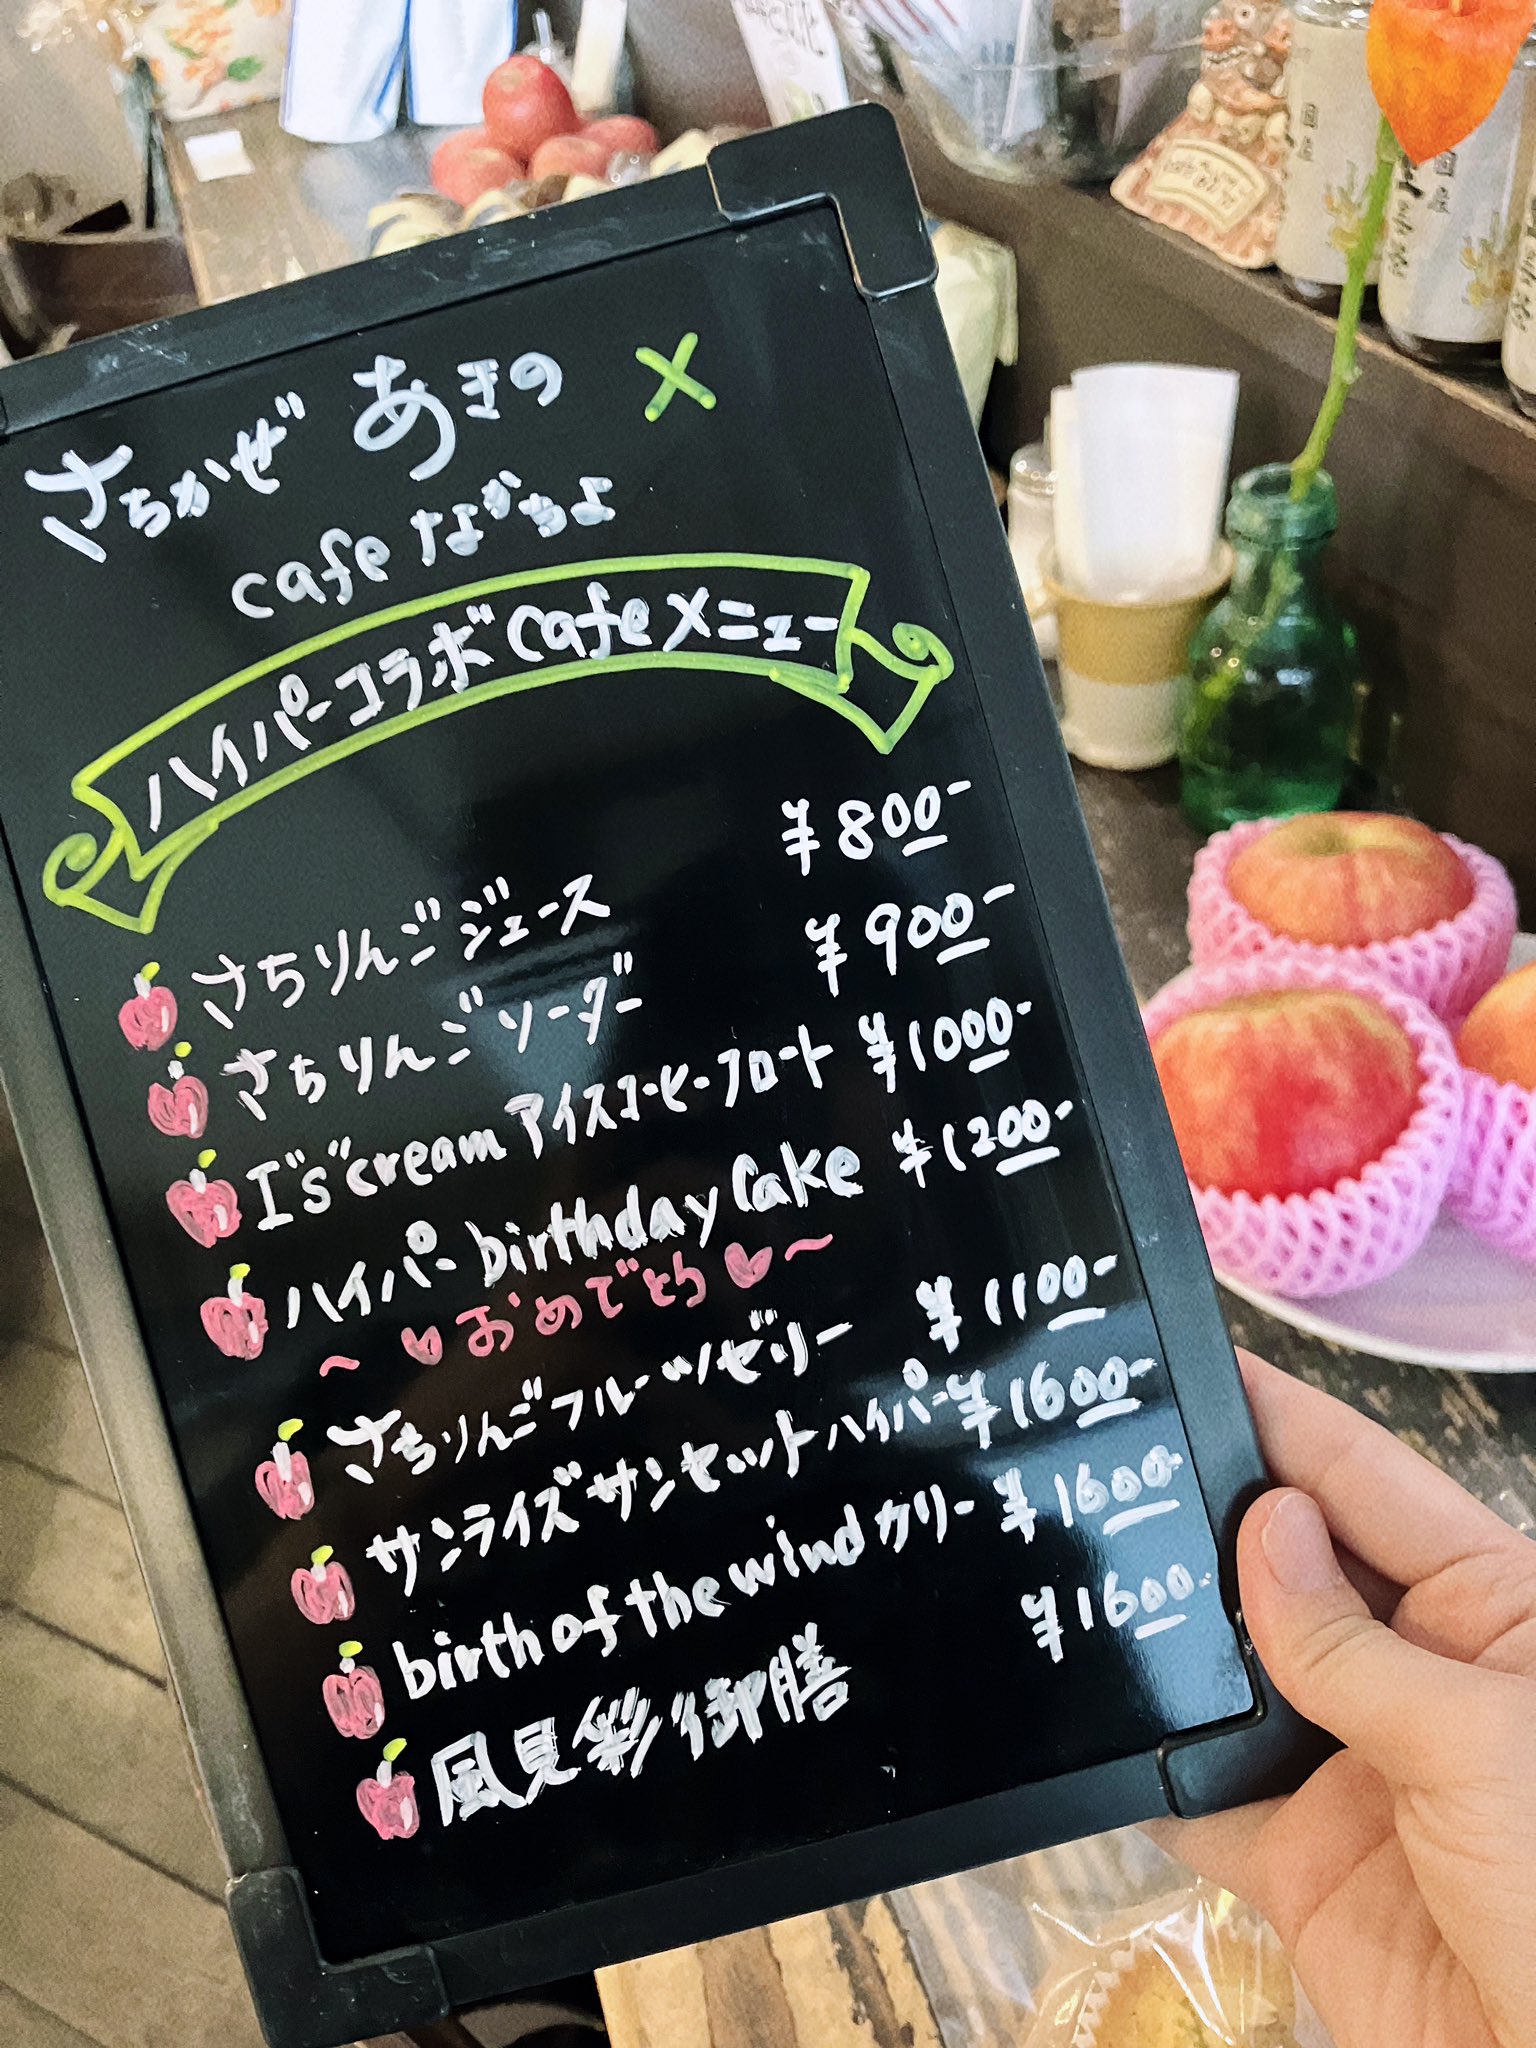 さちかぜ あきの ×
cafe ながちよ
ハイパーコラボcafeメニュー
さちりんごジュース ¥800-
さちりんごソーダー ¥900-
I"s"cream アイスコーヒーフロート ¥1000-
ハイパー birthday Cake ¥1200-
〜♥おめでとら♥〜
さちりんごフルーツゼリー ¥1100-
サンライズサンセットハイパー ¥1600-
birth of the wind カリー ¥1600-
風見彩御膳 ¥1600-